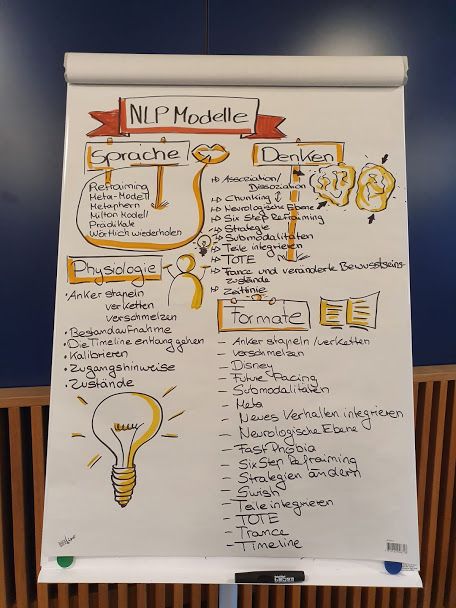 NLP Modelle
Sprache
Refraiming
Meta-Modell
Metaphern
Milton Modell
Prädikate
Wörtlich wiederholen
Denken
Assoziation/
Dissoziation
Chunking
Neurologische Ebene
Six Step Refraiming
Strategie
Submodalitäten
Teile integrieren
TOTE
Trance und veränderte Bewusstseins-
zustände
Zeitlinie
Physiologie
• Anker stapeln
verketten
verschmelzen
• Bestandaufnahme
• Die Timeline entlang gehen
• Kalibrieren
• Zugangshinweise
• Zustände
Formate
- Anker stapeln/verketten
- verschmelzen
- Disney
- Future Pacing
- Submodalitäten
- Meta
- Neues Verhalten integrieren
- Neurologische Ebene
- Fast Phobia
- Six Step Refraiming
- Strategien ändern
- Swish
- Teile integrieren
- TOTE
- Trance
- Timeline